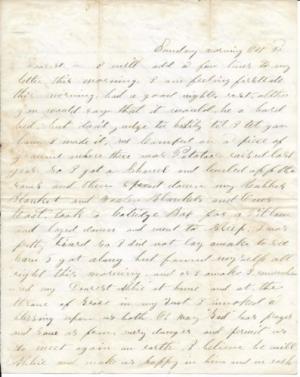 Sunday morning Oct
Dearest I will add a few lines to my
letter this morning. I am feeling first rate
this morning, had a good nights rest, altho
you would say that it would be a hard
bed but don't judge to hastily til I let you
how I made it, we Camped on a piece of
ground where there was Potatoes raised last
year So I got a Shovel and leveled off the
rows and then spread down my Rubber
Blanket and Woolen Blankets and
took a Catridge Box for a Pillow
and layed down and went to Sleep, I was
pretty tired So I did not lay awake to see
how I got along but found myself all
right this morning and as I awoke I remembered
my Dearest at home and at the
throne of Grace in my I invoked a
blessing upon us both O, may God hear prayer
and Save us from every danger and permit us
to meet again on earth. I believe he will
and make us happy in him and in each